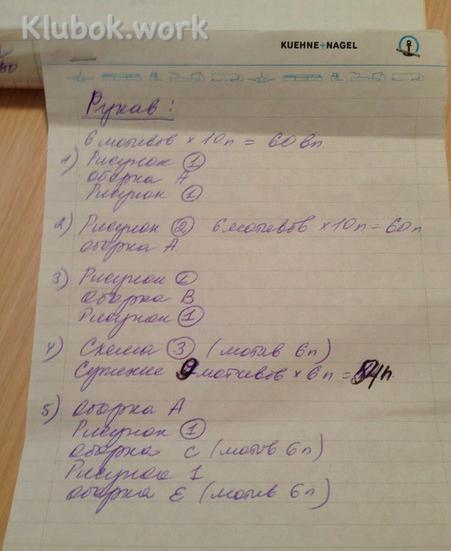 Klubok.work
KUEHNE+NAGEL
Рукав:
6 мотивов × 10п = 60 вп
1) Рисунок ①
оборка А
Рисунок ①
2) Рисунок ② 6 мотивов × 10п = 60п
оборка А
3) Рисунок ②
Оборка В
Рисунок ①
4) Схема ③ (мотив 6п)
Сужение 9 мотивов × 6п = 54п
5) Оборка А
Рисунок ①
оборка С (мотив 6п)
Рисунок 1
оборка Е (мотив 6п)